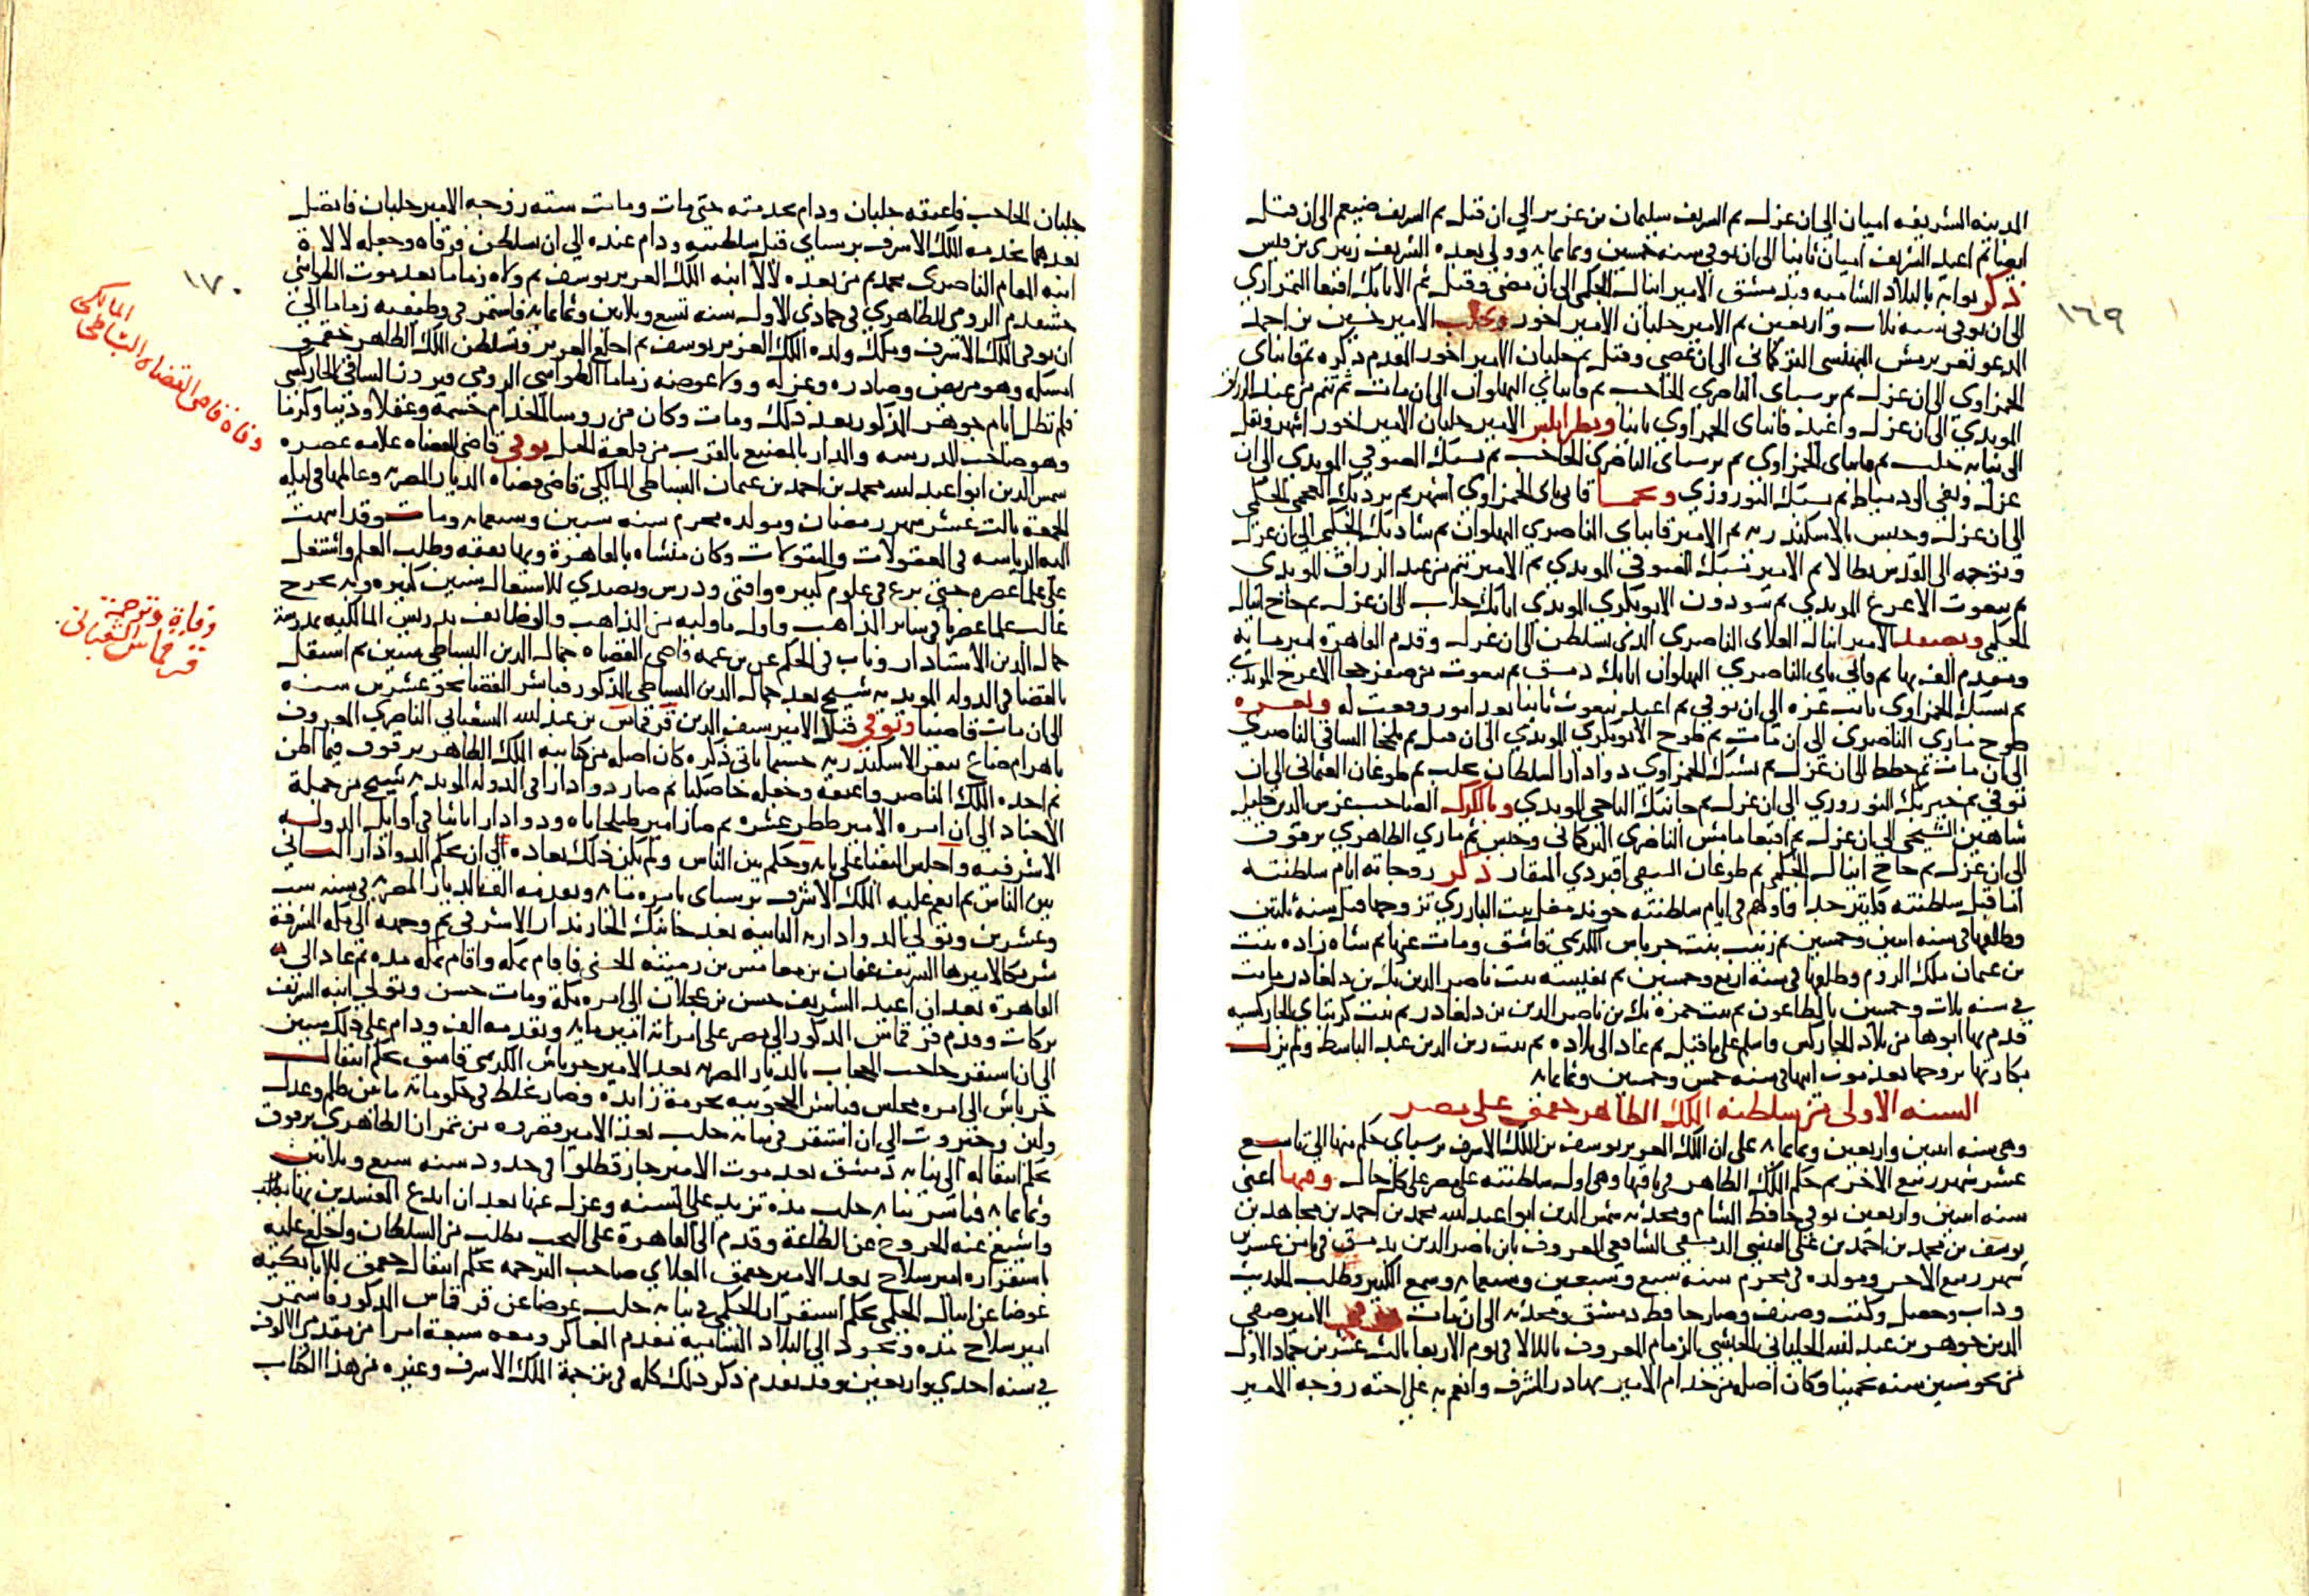 المدينه الشريفه اميان الى ان عزل ثم الشريف سليمان بن عزير الى ان قتل ثم الشريف ضيغم الى ان قتل
ايضا ثم اعيد الشريف اميان ثانيا الى ان توفى سنه خمسين وثمانمايه وولى بعده الشريف زبيرى بن قيس
ذكر نوابه بالبلاد الشاميه وبدمشق الامير اينال الجكمى الى ان عصى وقتل ثم الاتابك اقبغا التمرازى
الى ان توفى سنه ثلاث واربعين ثم الامير جلبان الامير اخور وبحلب الامير حسين بن احمد
المدعو تغرى برمش البهنسى التركمانى الى ان عصى وقتل ثم جلبان الامير اخور المقدم ذكره ثم قانباى
الحمزاوى الى ان عزل ثم برسباى الناصرى الحاجب ثم قانباى البهلوان الى ان مات ثم تنم من عبد الرزاق
المويدى الى ان عزل واعيد قانباى الحمزاوى ثانيا وبطرابلس الامير جلبان الامير اخور اشهر ونقل
الى نيابه حلب ثم قانباى الحمزاوى ثم برسباى الناصرى الحاجب ثم يشبك الصوفى المويدى الى ان
عزل ونفى الى دمياط ثم يشبك النوروزى وبحماه قانباى الحمزاوى اشهر ثم بردبك العجمى الجكمى
الى ان عزل وحبس بالاسكندريه ثم الامير قانباى الناصرى البهلوان ثم شادبك الجكمى الى ان عزل
وتوجه الى القدس بطالا ثم الامير يشبك الصوفى المويدى ثم الامير تنم من عبد الرزاق المويدى
ثم بيغوت الاعرج المويدى ثم سودون الابوبكرى المويدى اتابك حلب الى ان عزل ثم حاج اينال
الجكمى وبصفد الامير اينال العلاى الناصرى الذى تسلطن الى ان عزل وقدم القاهره امير مايه
ومقدم الف بها ثم قانى باى الناصرى البهلوان اتابك دمشق ثم بيغوت من صفرخجا الاعرج المويدى
ثم يشبك الحمزاوى نايب غزه الى ان توفى ثم اعيد بيغوت ثانيا بعد امور وقعت له وبغزه
طوخ مازى الناصرى الى ان مات ثم طوخ الابوبكرى المويدى الى ان قتل ثم يلخجا الساقى الناصرى
الى ان مات ثم حطط الى ان عزل ثم يشبك الحمزاوى دوادار السلطان بحلب ثم طوغان العثمانى الى ان
توفى ثم خيربك النوروزى الى ان عزل ثم جانبك التاجى المويدى وبالكرك الصاحب غرس الدين خليل
شاهين الشيخى الى ان عزل ثم اقبغا مامش الناصرى التركمانى وحبس ثم مازى الظاهرى برقوق
الى ان عزل ثم حاج اينال الجكمى ثم طوغان السيفى اقبردى المنقار ذكر زوجاته ايام سلطنته
اما قبل سلطنته فكثير جدا فاولهم فى ايام سلطنته خوند مغل بنت البارزى تزوجها قبل سنه ثلثين
وطلقها فى سنه اثنين وخمسين ثم زينب بنت جرباش الكريمى قاشق ومات عنها ثم شاه زاده بنت
بن عثمان ملك الروم وطلقها فى سنه اربع وخمسين ثم نفيسه بنت ناصر الدين بك بن دلغادر ماتت
فى سنه ثلاث وخمسين بالطاعون ثم بنت حمزه بك بن ناصر الدين بن دلغادر ثم بنت كرتباى الجاركسيه
قدم بها ابوها من بلاد الجاركس واسلم على ما قيل ثم عاد الى بلاده ثم بنت زين الدين عبد الباسط ولم يزل
بكارتها تزوجها بعد موت ابيها فى سنه خمس وخمسين وثمانمايه
السنه الاولى من سلطنه الملك الظاهر جقمق على مصر
وهى سنه اثنين واربعين وثمانمايه على ان الملك العزيز يوسف بن الملك الاشرف برسباى حكم منها الى تاسع
عشر شهر ربيع الاخر ثم حكم الملك الظاهر فى باقيها وهى اول سلطنته على مصر على كل حال وفيها اعنى
سنه اثنين واربعين توفى حافظ الشام ومحدثه شمس الدين ابو عبد الله محمد بن احمد بن مجاهد بن
يوسف بن محمد بن احمد بن على القيسى الدمشقى الشافعى المعروف بابن ناصر الدين بدمشق فى ثامن عشرين
شهر ربيع الاخر ومولده فى محرم سنه سبع وسبعين وسبعمايه وسمع الكثير وطلب الحديث
وداب وحصل وكتب وصنف وصار حافظ دمشق ومحدثه الى ان مات وتوفى الامير صفى
الدين جوهر بن عبد الله الجلبانى الحبشى الزمام المعروف باللالا فى يوم الاربعا ثالث عشرين جماد الاول
عن نحو ستين سنه تخمينا وكان اصله من خدام الامير بهادر المشرف وانعم به على اخته زوجه الامير
١٦٩
جلبان الحاجب فاعتقه جلبان ودام بخدمته حتى مات وماتت سته زوجه الامير جلبان فاتصل
بعدهما بخدمه الملك الاشرف برسباى قبل سلطنته ودام عنده الى ان تسلطن فرقاه وجعله لالاة
ابنه المقام الناصرى محمد ثم من بعده لالا ابنه الملك العزيز يوسف ثم ولاه زماما بعد موت الطواشى
خشقدم الرومى الظاهرى فى جمادى الاول سنه تسع وثلاثين وثمانمايه فاستمر فى وظيفته زماما الى
ان توفى الملك الاشرف وملك ولده الملك العزيز يوسف ثم اخلع العزيز وتسلطن الملك الظاهر جقمق
امسكه وهو مريض وصادره وعزله وولا عوضه زماما الطواشى الرومى فيروز الساقى الجاركسى
فلم تطل ايام جوهر المذكور بعد ذلك ومات وكان من روسا الخدام حشمة وعقلا ودينا وكرما
وهو صاحب المدرسه والدار بالمصنع بالقرب من قلعة الجبل توفى قاضى القضاه علامه عصره
شمس الدين ابو عبد الله محمد بن احمد بن عثمان البساطى المالكى قاضى قضاه الديار المصريه وعالمها فى ليله
الجمعه ثالث عشر شهر رمضان ومولده محرم سنه ستين وسبعمايه ومات وقد انتهت
اليه الرياسه فى المعقولات والمنقولات وكان منشاه بالقاهرة وبها تفقه وطلب العلم واشتغل
على علما عصره حتى برع فى علوم كثيره وافتى ودرس وتصدى للاشتغال سنين كثيره وبه تخرج
غالب علما عصرنا من ساير المذاهب واول ما وليه من المناصب والوظايف تدريس المالكيه بمدرسة
جمال الدين الاستادار وناب فى الحكم عن بن عمه قاضى القضاه جمال الدين البساطى سنين ثم استقل
بالقضا فى الدوله المويديه شيخ بعد جمال الدين البساطى المذكور فباشر القضا نحو عشرين سنه
الى ان مات قاضيا وتوفى قتيلا الامير سيف الدين قرقماس بن عبد الله الشعبانى الناصرى المعروف
باهرام ضاغ بثغر الاسكندريه حسبما ياتى ذكره كان اصله من كتابيه الملك الظاهر برقوق فيما اظن
ثم اخذه الملك الناصر واعتقه وجعله خاصكيا ثم صار دوادارا فى الدوله المويديه شيخ من جملة
الاجناد الى ان امره الامير ططر عشره ثم صار امير طبلخاناه ودوادارا ثانيا فى اوايل الدوله
الاشرفيه واجلس النقبا على بابه وحكم بين الناس ولم يكن ذلك بعاده الى ان يحكم الدوادار الثانى
بين الناس ثم انعم عليه الملك الاشرف برسباى بامره مايه وتقدمه الف بالديار المصريه فى سنه ست
وعشرين وتولى الدواداريه الثانيه بعد جانبك الخازندار الاشرفى ثم وجهه الى مكه المشرفة
شريكا لاميرها الشريف عنان بن مغامس بن رميثه الحسنى فاقام بمكه واقام بمكه مده ثم عاد الى
القاهرة بعد ان اعيد الشريف حسن بن عجلان الى امره مكة ومات حسن وتولى ابنه الشريف
بركات وقدم قرقماس المذكور الى مصر على امرته امير مايه وتقدمه الف ودام على ذلك سنين
الى ان استقر حاجب الحجاب بالديار المصريه بعد الامير جرباش الكريمى قاشق بحكم انتقال
جرباش الى امره مجلس فباشر الحجوبيه بحرمة زايده وصار غلط فى حكوماته ما بين ظلم وعدل
ولين وجبروت الى ان استقر فى نيابه حلب بعد الامير قصروه من تمراز الظاهرى برقوق
بحكم انتقاله الى نيابه دمشق بعد موت الامير جارقطلوا فى حدود سنه سبع وثلاثين
وثمانمايه فباشر نيابه حلب مده تزيد على السنه وعزل عنها بعد ان ابدع المفسدين بها
واشيع عنه الخروج عن الطاعة وقدم الى القاهرة على النجب بطلب من السلطان واخلع عليه
باستقراره امير سلاح بعد الامير جقمق العلاى صاحب الترجمه بحكم انتقال جقمق للاتابكيه
عوضا عن اينال الجكمى بحكم استقرار الجكمى فى نيابه حلب عوضا عن قرقماس المذكور فاستمر
امير سلاح مده وتجرد الى البلاد الشاميه مقدم العساكر ومعه سبعة امرا من مقدمى الالوف
فى سنه احدى واربعين وقد تقدم ذكر ذلك كله فى ترجمة الملك الاشرف وغيره من هذا الكتاب
١٧٠
وفاة قاضى القضاه البساطى المالكى
وفاة وترجمة
قرقماس الشعبانى